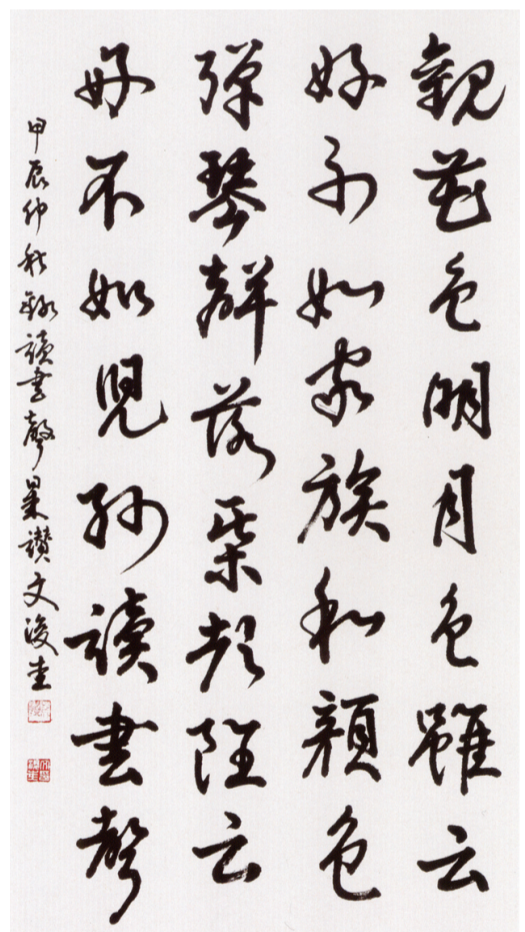 觀花色明月色雖云
好不如家族和顔色
彈琴聲落棊聲雖云
好不如兒孫讀書聲
甲辰仲秋錄讀書聲讚文浚圭